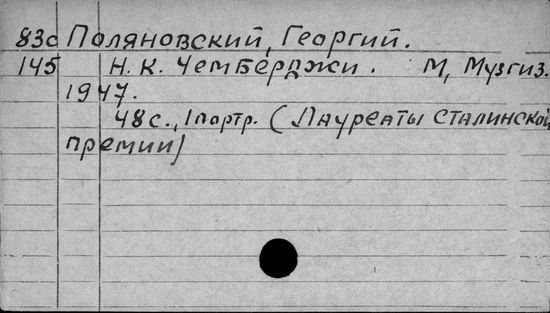 83с Поляновский, Георгий.
145 Н. К. Чемберджи. М, Музгиз.
1947.
48 с., 1 портр. (Лауреаты Сталинской
премии)